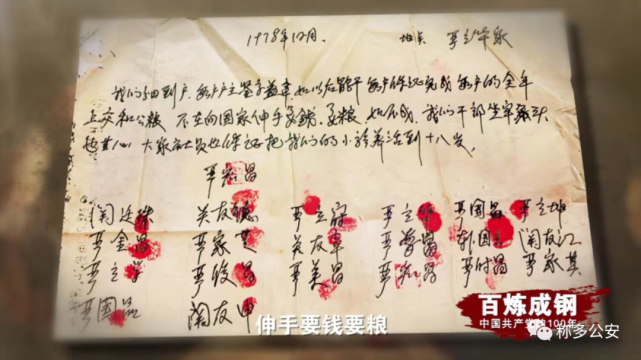 1978年12月. 地点 严立华家
我们分田到户, 每户户主签字盖章, 如以后能干, 每户保证完成每户的全年
上交和公粮, 不在向国家伸手要钱要粮, 如不成, 我们干部坐牢杀头
也甘心, 大家社员也保证把我们的小孩养活到十八岁.
严宏昌
关廷珠 关友德 严立符 严立华 严国昌 严立坤
严金昌 严家芝 关友章 严学昌 韩国云 关友江
严立学 严俊昌 严美昌 严宏昌 严付昌 严家其
严国品 关友申
伸手要钱要粮
百炼成钢
中国共产党的100年
称多公安